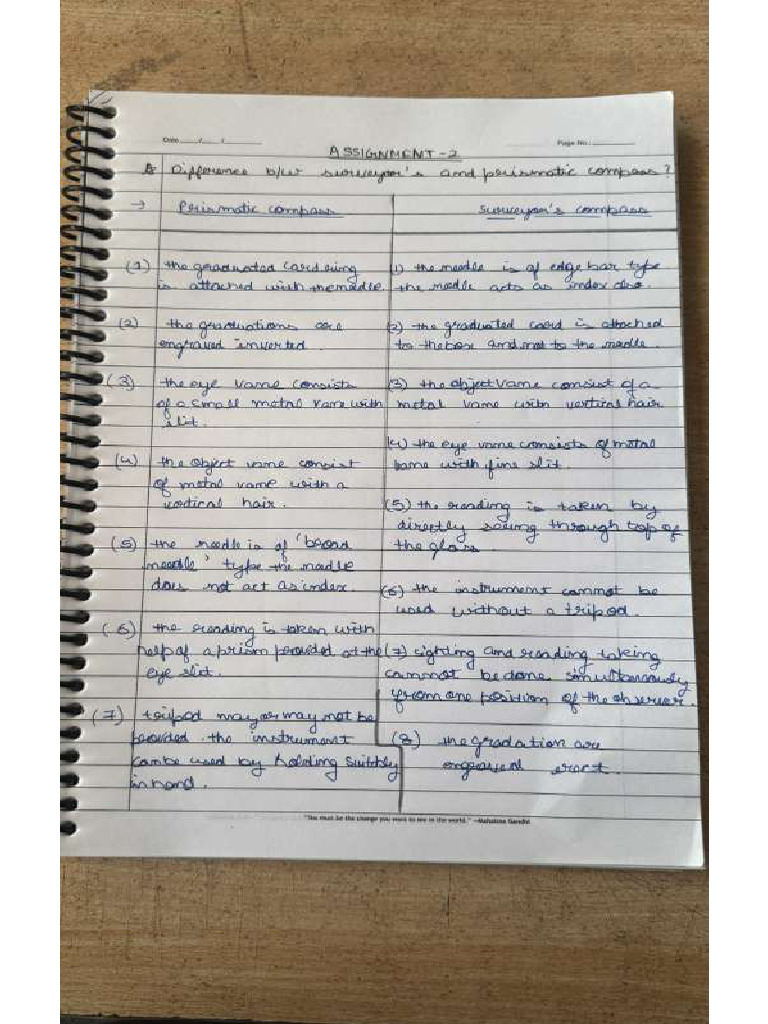 Date ___/___/___ Page No.:
ASSIGNMENT-2
Q Difference b/w surveyor's and perismatic compass?
→ Perismatic compass
(1) the graduated card eing
is attached with the needle.
(2) the graduations are
engraved inverted.
(3) the eye vame consists
of a small metal vame with
slit.
(4) the object vame consist
of metal vame with a
vertical hair.
(5) the needle is of 'broad
needle' type the needle
does not act as index.
(6) the reading is taken with
help of a prism provided at the
eye slit.
(7) tripod may or may not be
provided the instrument
can be used by holding suitbly
in hand.
surveyor's compass
1) the needle is of edge bar type
the needle acts as index also.
(2) the graduated card is attached
to the box and not to the needle.
(3) the object vame consist of a
metal vame with vertical hair
(4) the eye vame consists of metal
vame with fine slit.
(5) the reading is taken by
directly seeing through top of
the glass.
(6) the instrument cannot be
used without a tripod.
(7) sighting and reading takeing
cannot be done simultaneously
from one position of the observer.
(8) the gradation are
engraved erect.
"You must be the change you want to see in the world." —Mahatma Gandhi